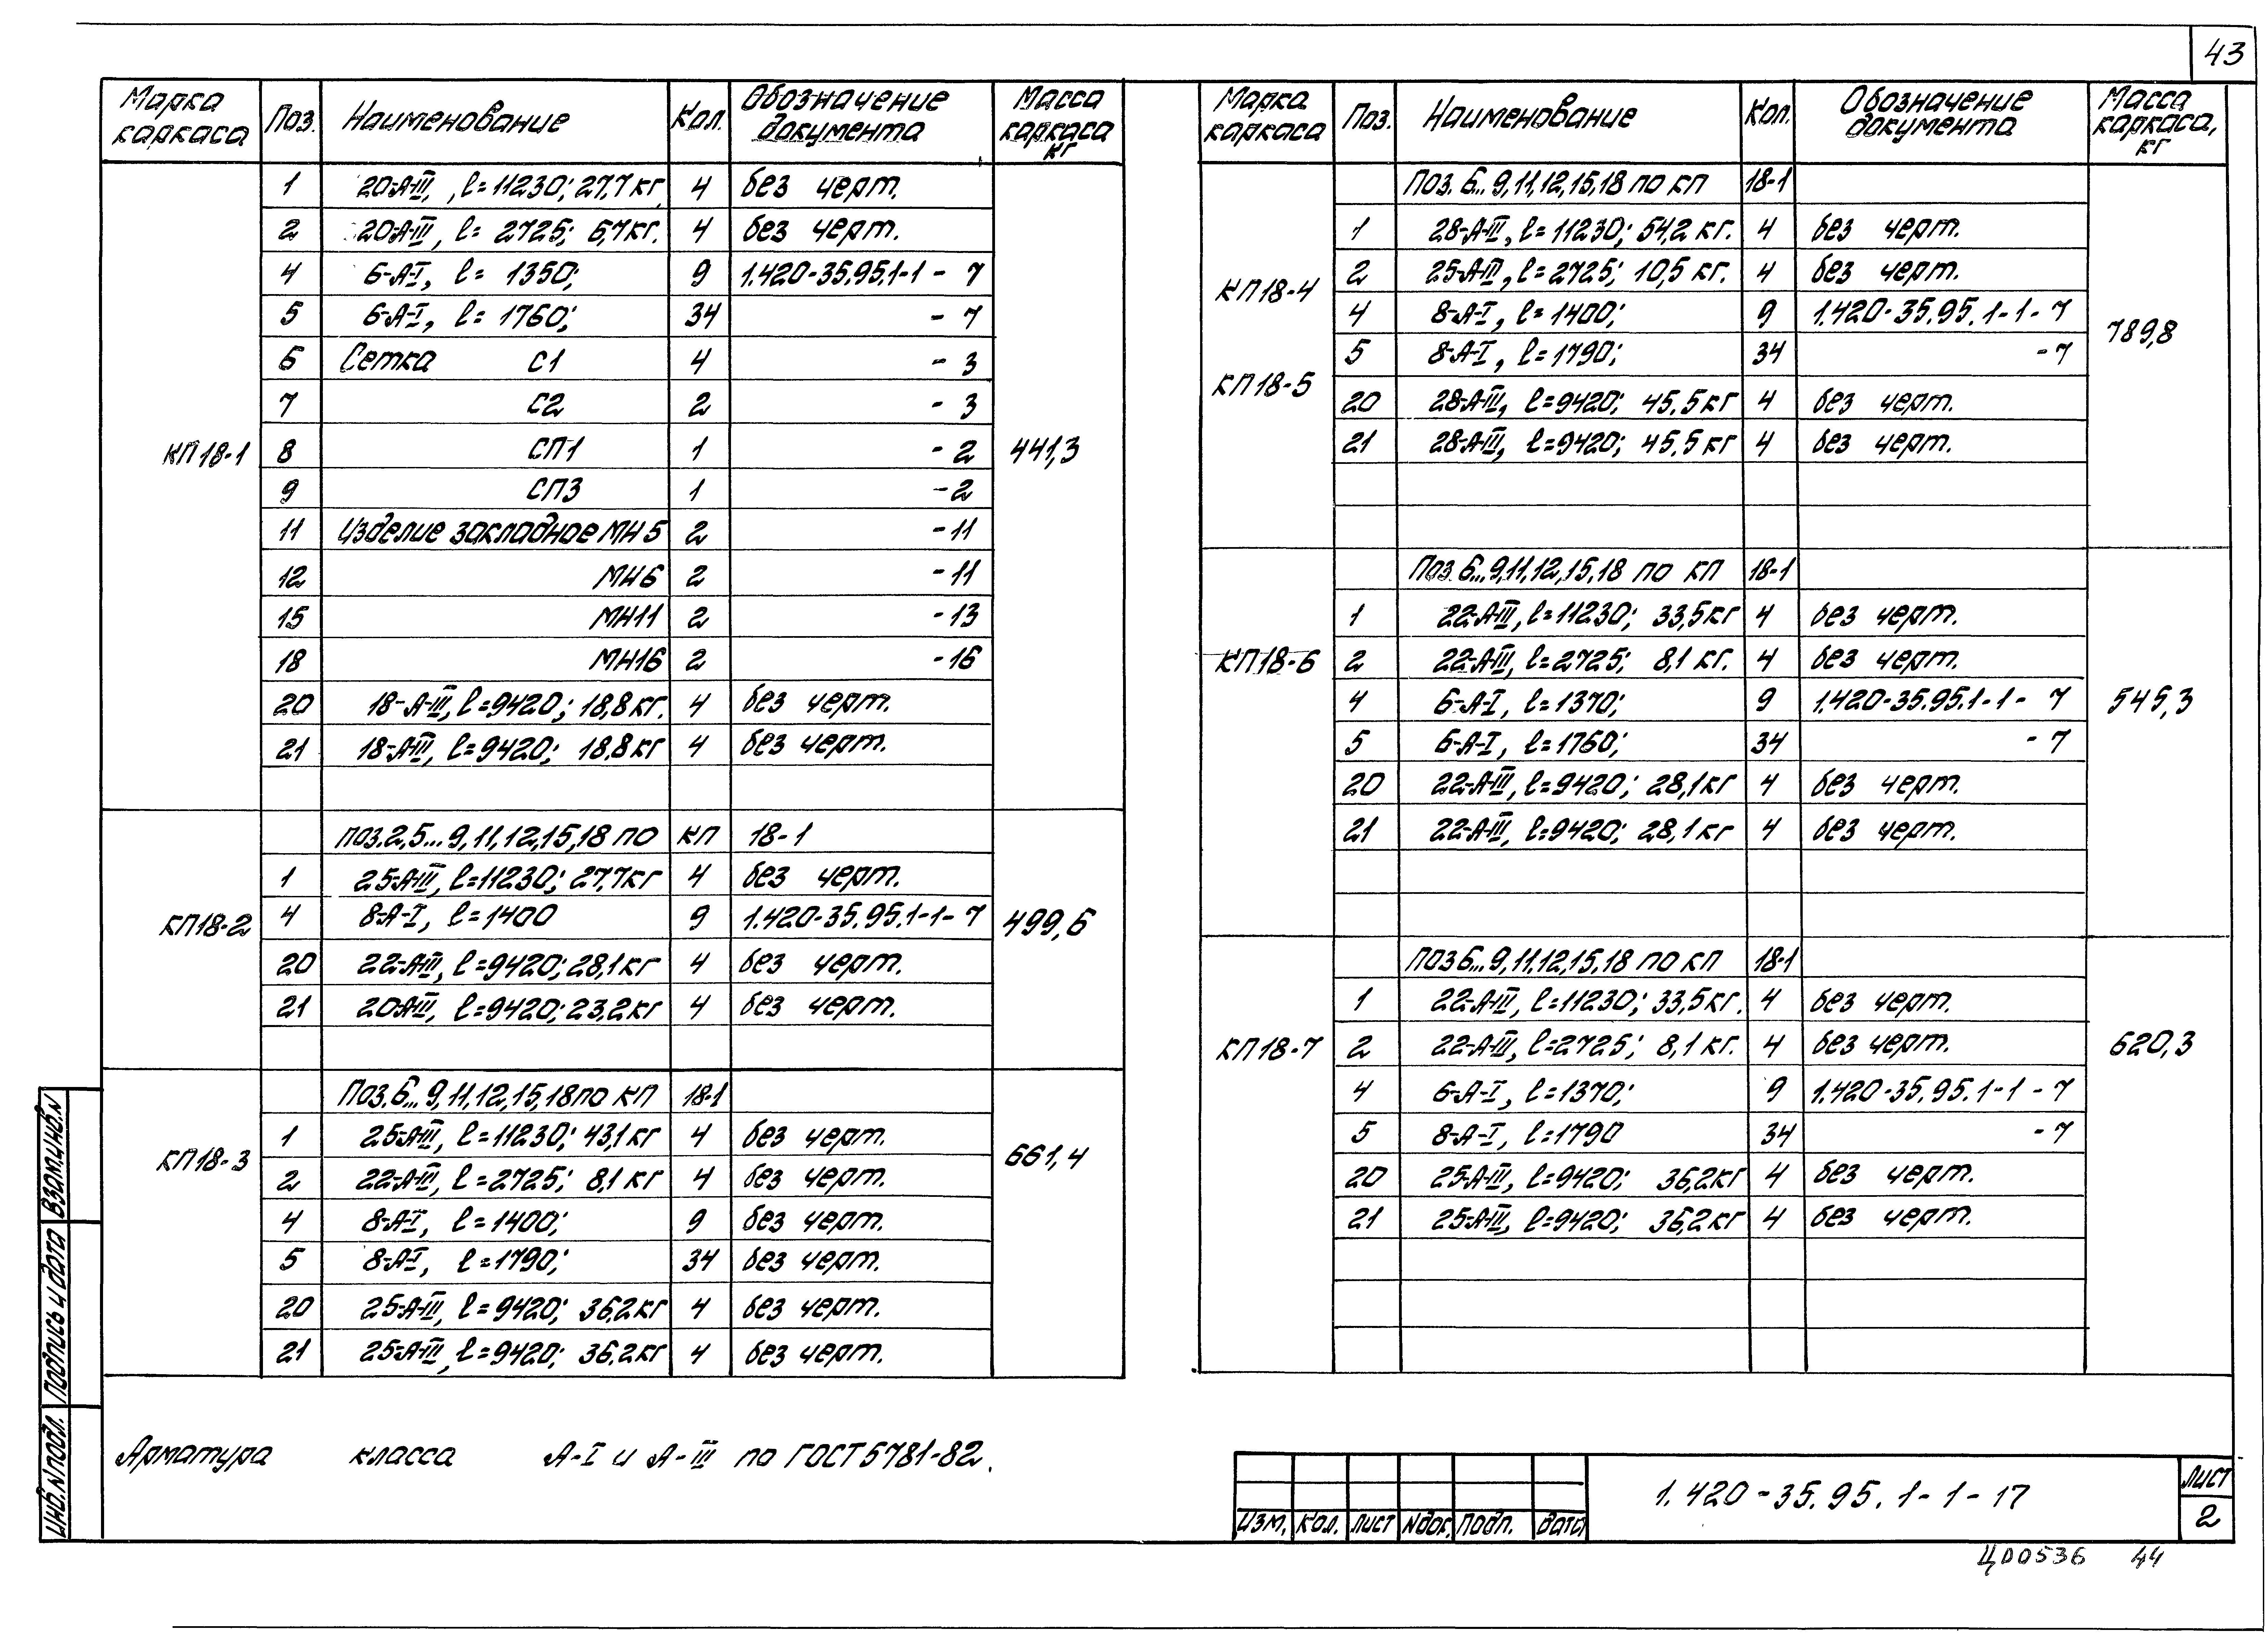 43
Марка каркаса Поз. Наименование Кол. Обозначение документа Масса каркаса кг
КП18-1 441,3
1 20-А-III, l=11230; 27,7кг. 4 без черт.
2 20-А-III, l= 2725; 6,7кг. 4 без черт.
4 6-А-I, l= 1350; 9 1.420-35.95.1-1 - 7
5 6-А-I, l= 1760; 34 - 7
6 Сетка С1 4 - 3
7 С2 2 - 3
8 СП1 1 - 2
9 СП3 1 - 2
11 Изделие закладное МН5 2 - 11
12 МН6 2 - 11
15 МН11 2 - 13
18 МН16 2 - 16
20 18-А-III, l=9420; 18,8кг. 4 без черт.
21 18-А-III, l=9420; 18,8кг 4 без черт.
КП18-2 499,6
поз.2,5...9,11,12,15,18 по кп 18-1
1 25-А-III, l=11230; 27,7кг 4 без черт.
4 8-А-I, l=1400 9 1.420-35.95.1-1- 7
20 22-А-III, l=9420; 28,1кг 4 без черт.
21 20-А-III, l=9420; 23,2кг 4 без черт.
КП18-3 661,4
Поз.6...9,11,12,15,18 по КП 18-1
1 25-А-III, l=11230; 43,1кг 4 без черт.
2 22-А-III, l=2725; 8,1 кг 4 без черт.
4 8-А-I, l=1400; 9 без черт.
5 8-А-I, l=1790; 34 без черт.
20 25-А-III, l=9420; 36,2кг 4 без черт.
21 25-А-III, l=9420; 36,2кг 4 без черт.
Марка каркаса Поз. Наименование Кол. Обозначение документа Масса каркаса, кг
КП18-4
КП18-5 789,8
Поз. 6...9,11,12,15,18 по кп 18-1
1 28-А-III, l=11230; 54,2 кг. 4 без черт.
2 25-А-III, l=2725; 10,5 кг. 4 без черт.
4 8-А-I, l=1400; 9 1.420-35.95.1-1-7
5 8-А-I, l=1790; 34 -7
20 28-А-III, l=9420; 45.5кг 4 без черт.
21 28-А-III, l=9420; 45.5кг 4 без черт.
КП18-6 545,3
Поз.6...9,11,12,15,18 по кп 18-1
1 22-А-III, l=11230; 33,5кг 4 без черт.
2 22-А-III, l=2725; 8,1 кг. 4 без черт.
4 6-А-I, l=1370; 9 1.420-35.95.1-1- 7
5 6-А-I, l=1760; 34 - 7
20 22-А-III, l=9420; 28,1кг 4 без черт.
21 22-А-III, l=9420; 28,1кг 4 без черт.
КП18-7 620,3
Поз6...9,11,12,15,18 по кп 18-1
1 22-А-III, l=11230; 33,5кг. 4 без черт.
2 22-А-III, l=2725; 8,1 кг. 4 без черт.
4 6-А-I, l=1370; 9 1.420-35.95.1-1 - 7
5 8-А-I, l=1790 34 - 7
20 25-А-III, l=9420; 36,2кг 4 без черт.
21 25-А-III, l=9420; 36,2кг 4 без черт.
Арматура класса А-I и А-III по ГОСТ 5781-82.
Взам.инв.N
Подпись и дата
Инв.N подл.
Изм. Кол. Лист Nдок. Подп. Дата
1.420-35.95.1-1-17
Лист
2
Ц00536 44